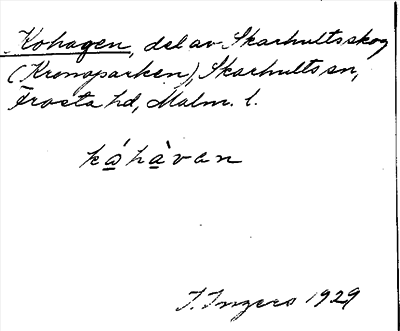 Kohagen, del av Skarhults skog
(Kronoparken), Skarhults sn,
Frosta hd, Malm. l.
ká̱hà̱van
I. Ingers 1929